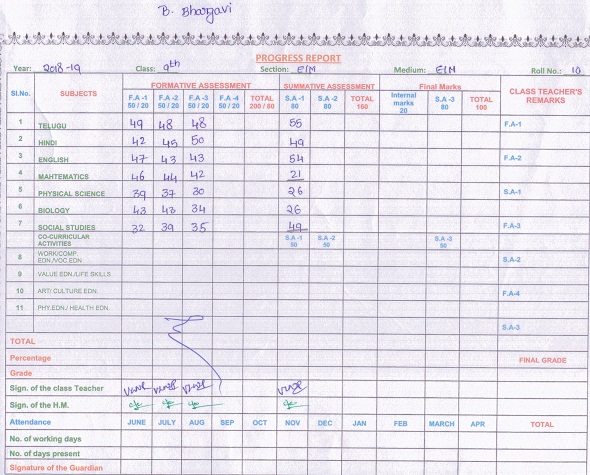 B. Bhargavi
PROGRESS REPORT
Year: 2018-19 Class: 9th Section: E/M Medium: E/M Roll No.: 10
Sl.No. SUBJECTS FORMATIVE ASSESSMENT SUMMATIVE ASSESSMENT Final Marks CLASS TEACHER'S REMARKS
F.A -1 50 / 20 F.A -2 50 / 20 F.A -3 50 / 20 F.A -4 50 / 20 TOTAL 200 / 80 S.A -1 80 S.A -2 80 TOTAL 160 Internal marks 20 S.A -3 80 TOTAL 100
1 TELUGU 49 48 48 55 F.A-1
2 HINDI 42 45 50 49
3 ENGLISH 47 43 43 54 F.A-2
4 MAHTEMATICS 46 44 42 21
5 PHYSICAL SCIENCE 39 37 30 26 S.A-1
6 BIOLOGY 43 43 34 26
7 SOCIAL STUDIES 32 39 35 49 F.A-3
CO-CURRICULAR ACTIVITIES S.A -1 50 S.A -2 50 S.A -3 50
8 WORK/COMP. EDN./VOC.EDN. S.A-2
9 VALUE EDN./LIFE SKILLS
10 ART/ CULTURE EDN. F.A-4
11 PHY.EDN./ HEALTH EDN.
S.A-3
TOTAL
Percentage FINAL GRADE
Grade
Sign. of the class Teacher
Sign. of the H.M.
Attendance JUNE JULY AUG SEP OCT NOV DEC JAN FEB MARCH APR TOTAL
No. of working days
No. of days present
Signature of the Guardian